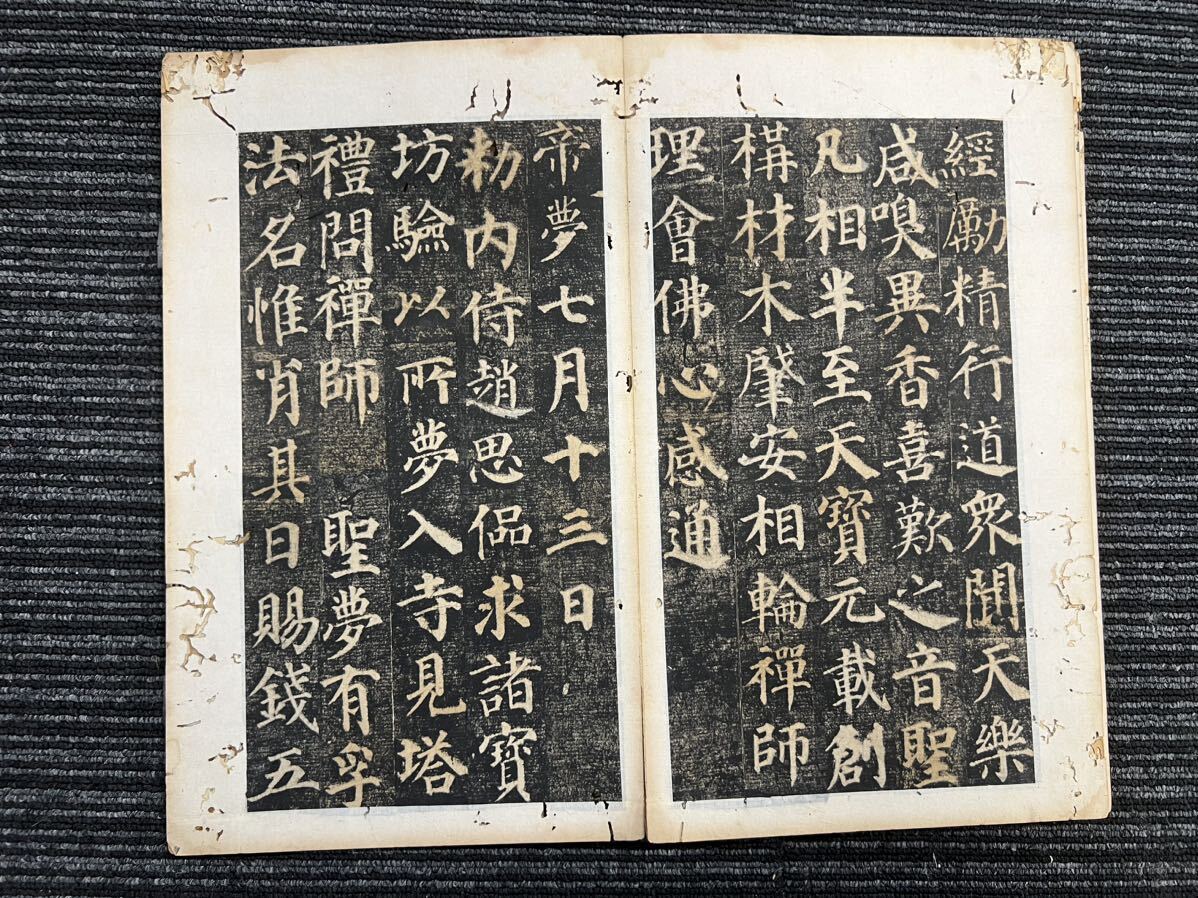 經勵精行道衆聞天樂
咸嗅異香喜歎之音聖
凡相半至天寶元載創
構材木肇安相輪禪師
理會佛心感通
帝夢七月十三日
勑内侍趙思侶求諸寶
坊驗以所夢入寺見塔
禮問禪師 聖夢有孚
法名惟肖其日賜錢五